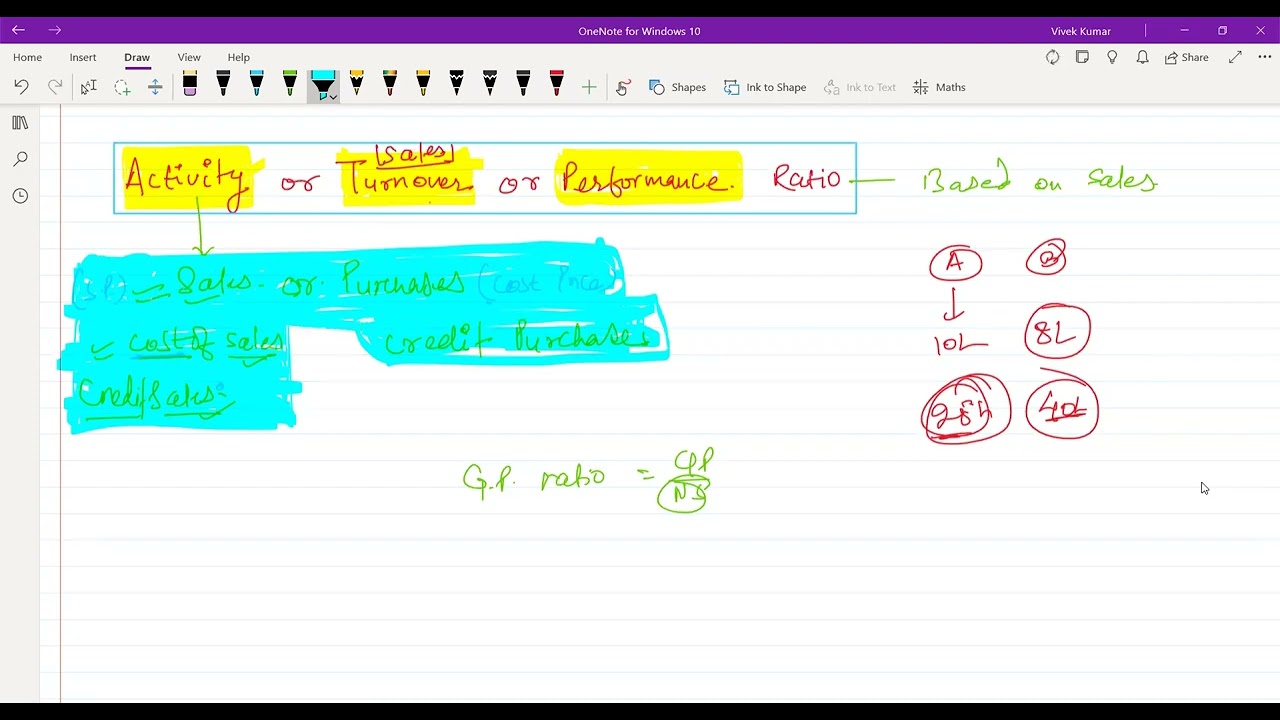 OneNote for Windows 10
Vivek Kumar
Home Insert Draw View Help
Share
Shapes Ink to Shape Ink to Text Maths
[Sales]
Activity or Turnover or Performance. Ratio — Based on Sales.
(S.P) Sales or Purchases (Cost Price
cost of sales credit Purchases
Credit Sales
A B
10L 8L
40L
G.P. ratio = GP
NS